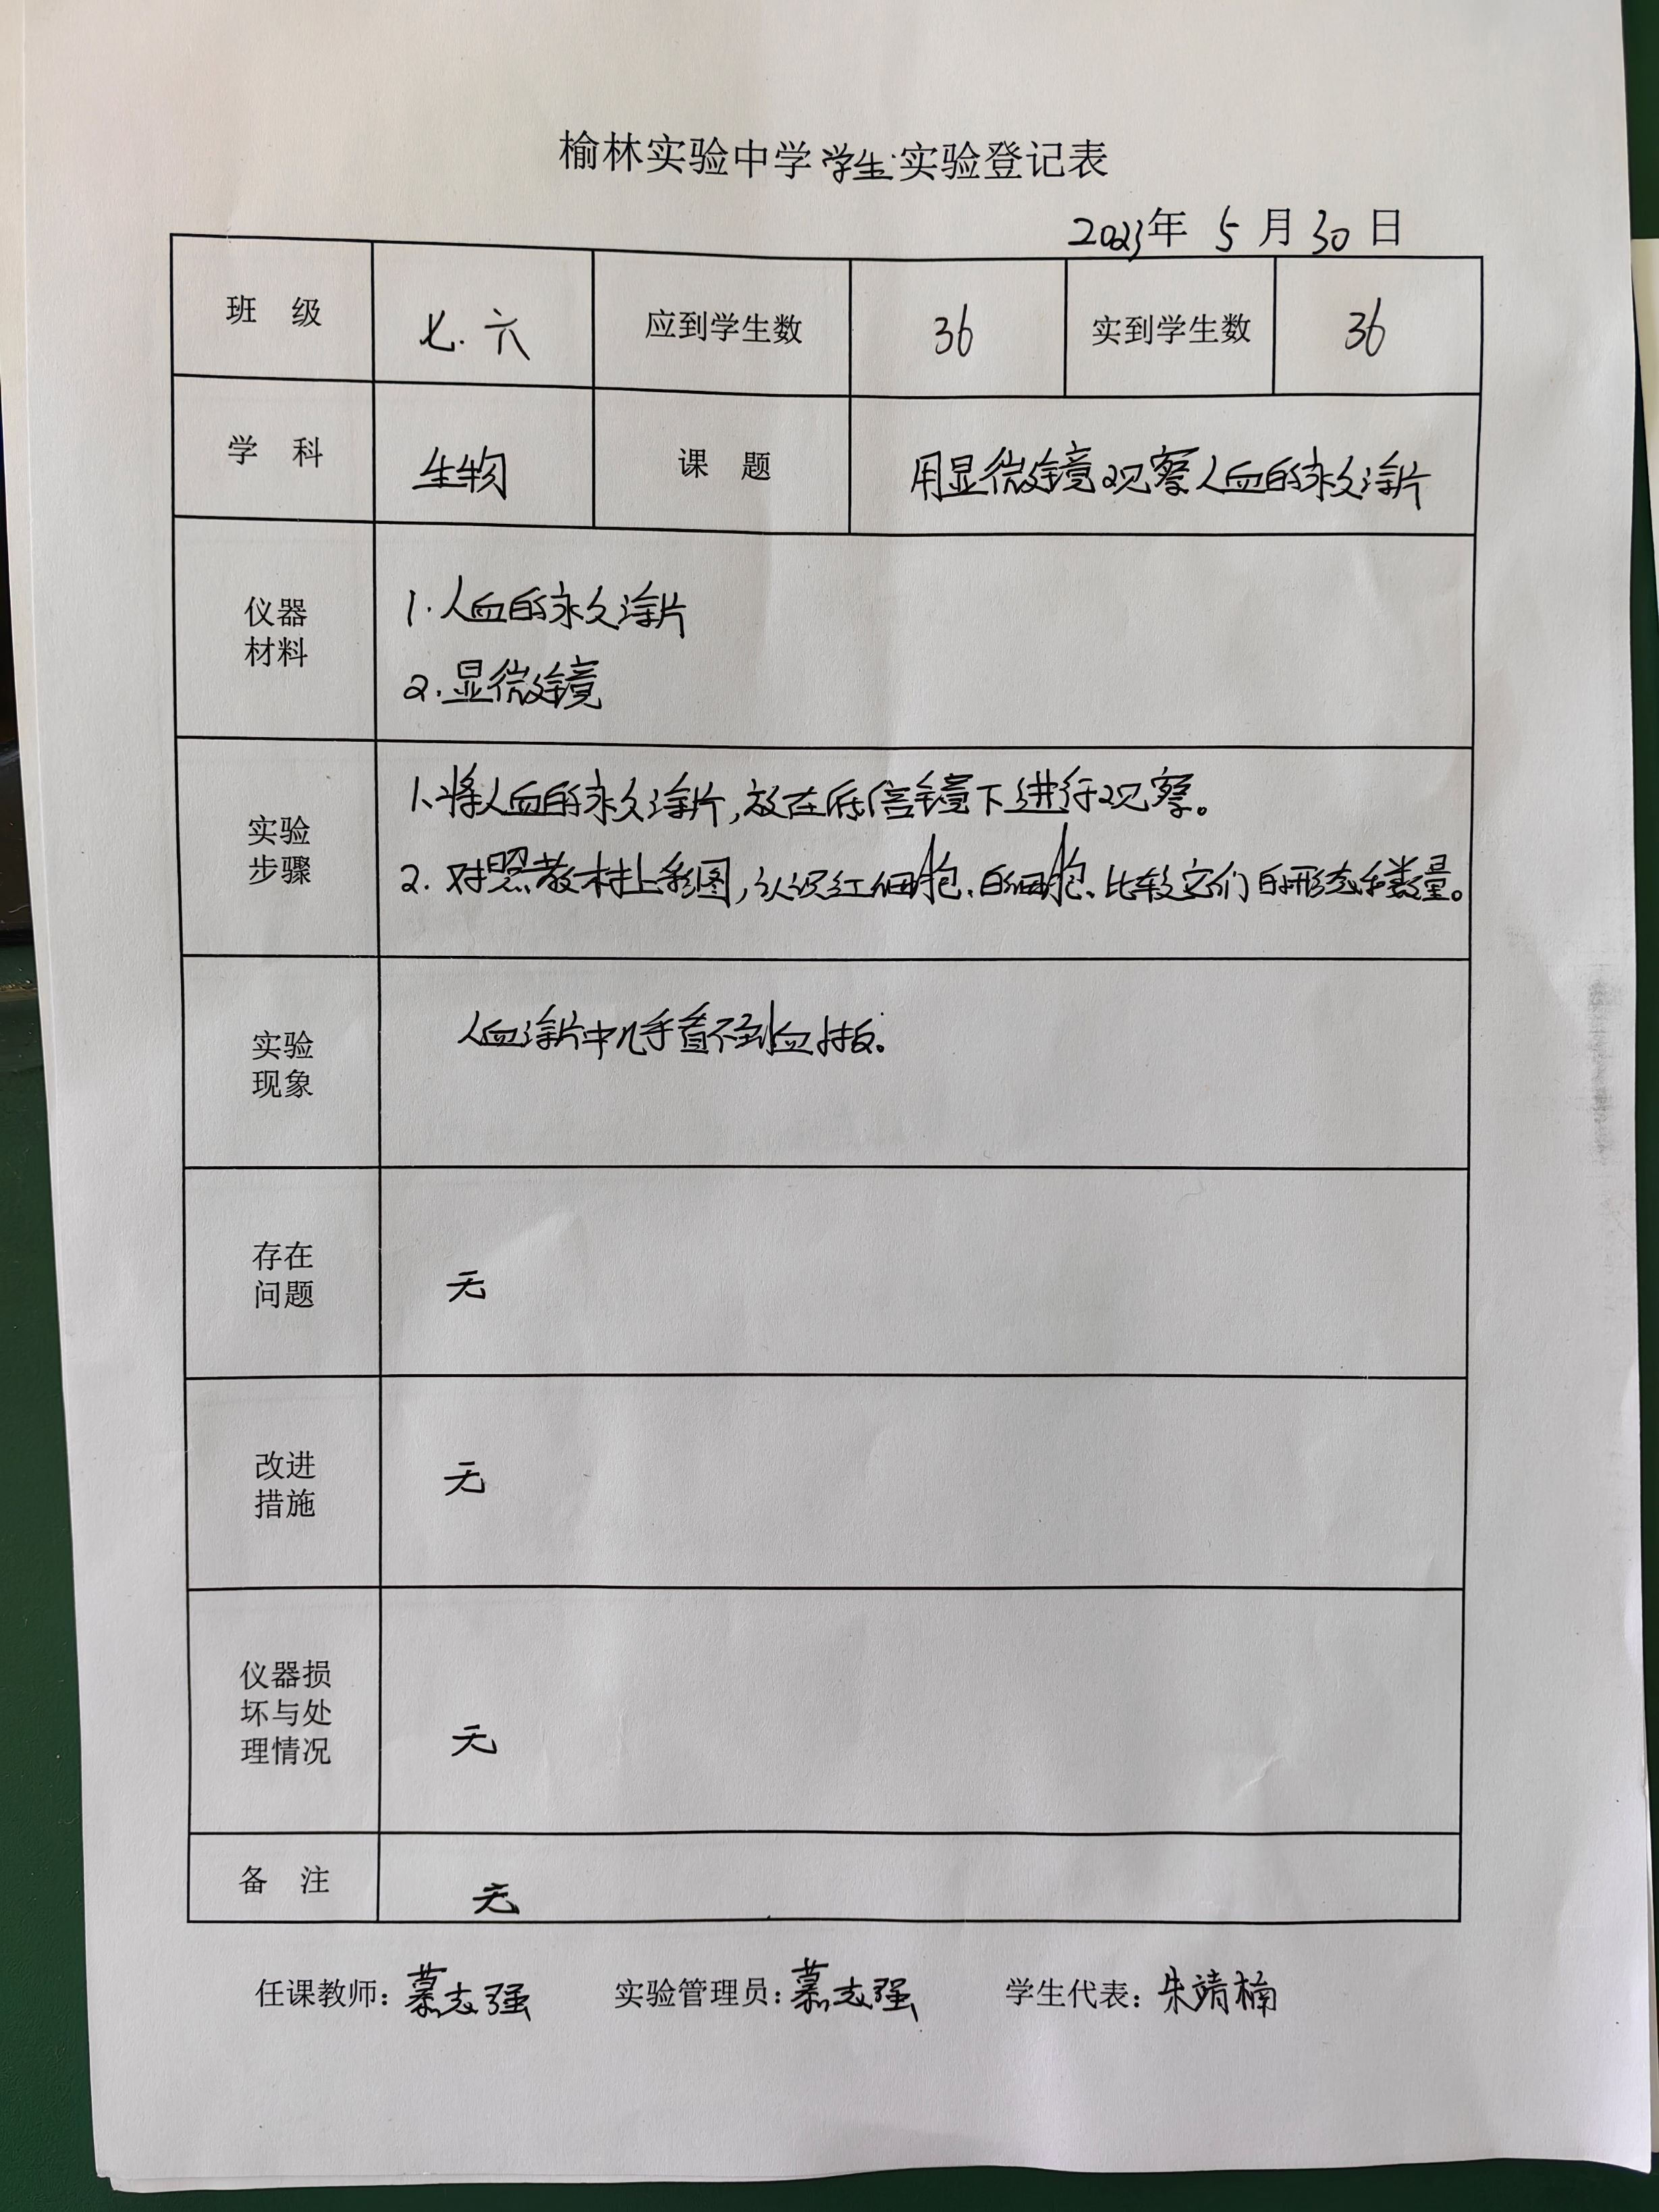 榆林实验中学学生实验登记表
2023年 5 月 30 日
班 级 七.六 应到学生数 36 实到学生数 36
学 科 生物 课 题 用显微镜观察人血的永久涂片
仪器
材料
1.人血的永久涂片
2.显微镜
实验
步骤
1、将人血的永久涂片,放在低倍镜下进行观察。
2.对照教材上彩图,认识红细胞、白细胞、比较它们的形态和数量。
实验
现象
人血涂片中几乎看不到血小板。
存在
问题
无
改进
措施
无
仪器损
坏与处
理情况
无
备 注 无
任课教师:慕志强 实验管理员:慕志强 学生代表:朱靖楠